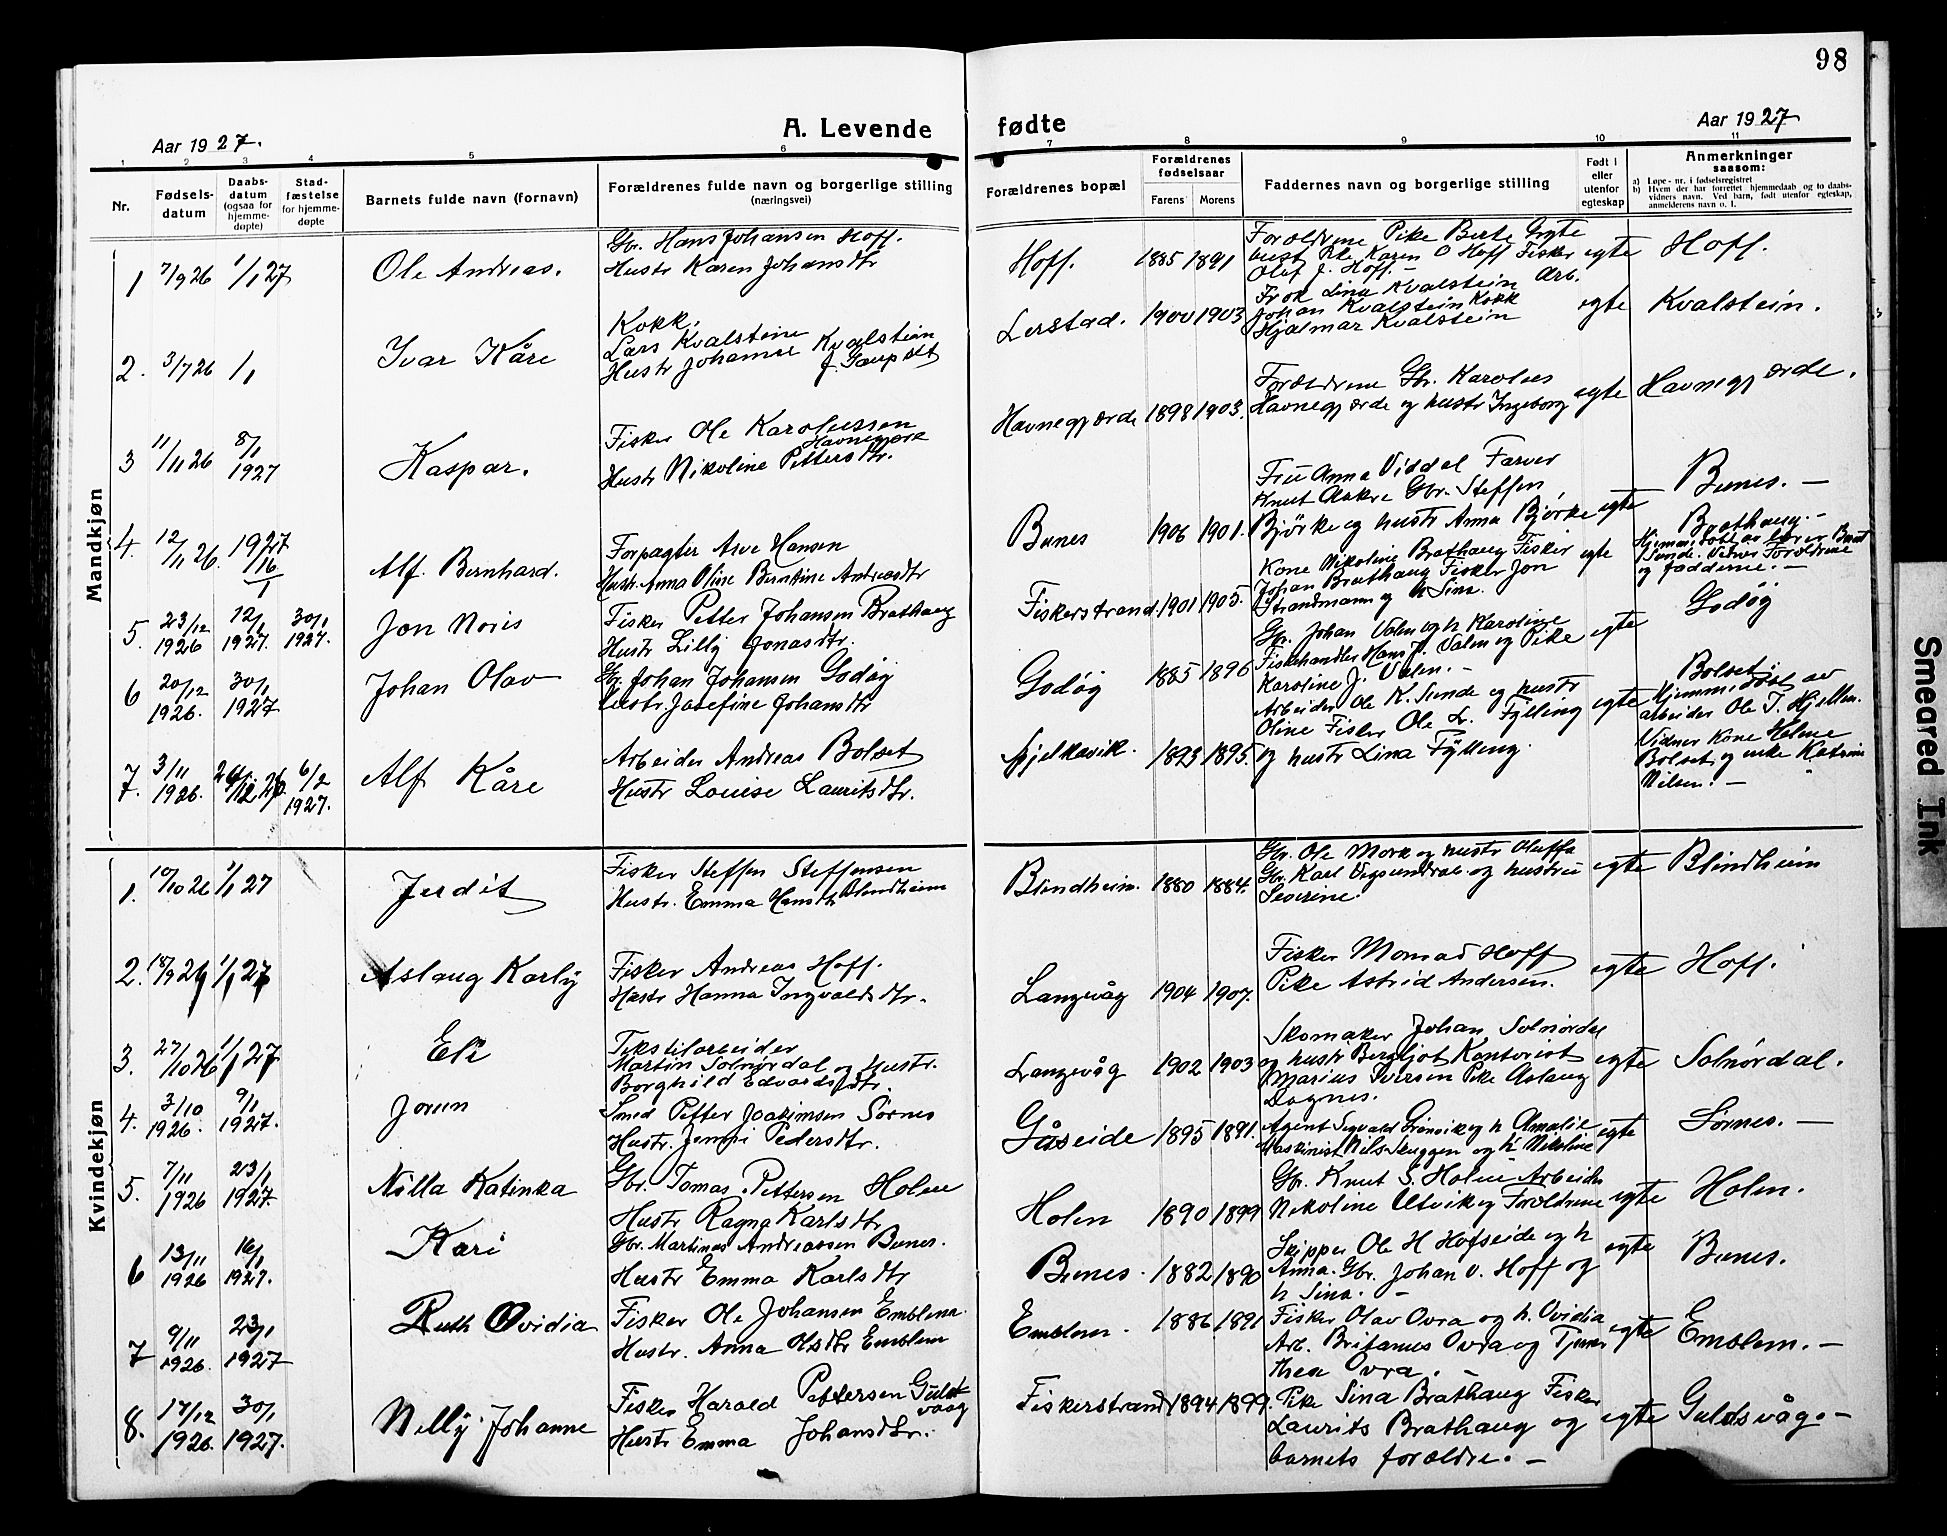 98
Aar 1927.
A. Levende
fødte
Aar 1927
1 2 3 4 5 6 7 8 9 10 11
Nr.
Fødsels-
datum
Daabs-
datum
(ogsaa for
hjemme-
døpte)
Stad-
fæstelse
for hjemme-
døpte
Barnets fulde navn (fornavn)
Forældrenes fulde navn og borgerlige stilling
(næringsvei)
Forældrenes bopæl
Forældrenes
fødselsaar
Farens Morens
Faddernes navn og borgerlige stilling
Født i
eller
utenfor
egteskap
Anmerkninger
saasom:
a) Løpe-nr. i fødselsregistret
b) Hvem der har forrettet hjemmedaab og to daabs-
vidners navn. Ved barn, født utenfor egteskap,
anmelderens navn o. l.
Mandkjøn
1 7/9 26 1/1 27
Ole Andreas.
Gbr. Hans Johansen Hoff.
Hustr Karen Johansdtr
Hoff. 1885 1891
Foreldrene Pike Berte
Pike Karen O Hoff Fisker
Olof J. Hoff. —
egte Hoff.
2. 3/7 26 1/1
Ivar Kåre
Kokk.
Lars Kvalstein
Hustr Johanne Kvalstein
Lerstad. 1900 1903
Frøk Lina Kvalstein Arb.
Johan Kvalstein Kokk
Hjalmar Kvalstein
egte Kvalstein.
3 11/11 26 8/1 1927
Kaspar.
Fisker Ole Karolussen
Havnegjære
Hustr Nikoline Pettersdtr.
Havnegjærde 1898 1903.
Foreldrene Gbr. Karolus
Havnegjærde og hustr Ingeborg
egte Havnegjærde.
4. 12/11 26. 1927 16/1
Alf. Bernhard.
Forpagter Arve Hansen
Hustr. Anna Oline Berntine Andreasdtr
Bunes 1906 1901.
Fru Anna Viddal Farver
Knut Aakre Gbr. Steffen
Bjørke og hustr Anna Bjørke
egte Bunes. —
5. 23/12 1926 12/1 1927. 30/1 1927.
Jon Noris
Fisker Petter Johansen Brathaug
Hustr Lilly Jonasdtr.
Fiskerstrand 1901 1905.
Kone Nikoline Brathaug Fisker
Johan Brathaug Fisker Jon
Strandmann og h Sina.
egte Brathaug. —
Hjemmedøbt av lærer Bernt
Sunde. Vidner Foreldrene
og fadderne. —
6 20/12 1926. 30/1 1927
Johan Olav
Gbr. Johan Johansen Godøy
Hustr. Josefine Johansdtr
Godøy 1885 1896
Gbr. Johan Valen og h Karoline
Fiskehandler Hans J. Valen og Pike
Karoline J. Valen. —
egte Godøy
7. 3/11 1926. 26/12 26 6/2 1927.
Alf Kåre
Arbeider Andreas Bolset
Hustr Louise Lauritsdtr.
Spjelkavik. 1893 1895.
Arbeider Ole K. Sunde og hustr
Oline Fisker Ole L. Fylling
og hustr Lina Fylling.
egte Bolset
Hjemmedøbt av
arbeider Ole T. Hjellen.
Vidner Kone Helene
Bolset og enke Katrine
Nilsen. —
Kvindekjøn
1. 10/10 26 1/1 27
Judit
Fisker Steffen Steffensen
Hustr. Emma Hansdtr Blindheim
Blindheim. 1880 1884.
Gbr. Ole Mork og hustr Oluffa
Gbr. Karl Vegsundvåg og hustru
Severine.
egte Blindheim
2. 18/9 26 1/1 27
Aslaug Karly
Fisker Andreas Hoff.
Hustr Hanna Ingvaldsdtr.
Langevåg 1904 1907.
Fisker Monrad Hoff
Pike Astrid Andersen.
egte Hoff.
3. 27/10 26 1/1 27
Eli
Tekstilarbeider
Martin Solnørdal og Hustr.
Borghild Edvardsdtr.
Langevåg 1902 1903
Skomaker Johan Solnørdal
og hustr Bergljot Kontorist
Marius Iversen Pike Aslaug
Dagnes.
egte Solnørdal.
4. 3/10 1926. 9/1 1927.
Jorun
Smed Petter Joakimsen Sørnes
Hustr. Jenni Pedersdtr.
Gåseide 1895 1891.
Agent Sigvald Grønvik og h Amalie
Maskinist Nils Skuggen og h Nikoline
egte Sørnes. —
5. 7/11 1926 23/1 1927.
Nilla Katinka
Gbr. Tomas Pettersen Holen
Hustr Ragna Karlsdtr
Holen 1890 1899
Gbr. Knut S. Holen Arbeider
Nikoline Utvik og Foreldrene
egte Holen.
6 13/11 1926 16/1 1927.
Kari
Gbr. Martinus Andreassen Bunes.
Hustr Emma Karlsdtr
Bunes. 1882 1890
Skipper Ole H Hofseide og h
Anna. Gbr. Johan V. Hoff og
h Sina. —
egte Bunes.
7 9/11 1926. 23/1 1927
Ruth Ovidia
Fisker Ole Johansen Emblem.
Hustr. Anna Olsdtr Emblem
Emblem. 1886 1891
Fisker Olav Ovra og h. Ovidia
Arb. Britanus Ovra og
thea Ovra. —
egte Emblem. —
8. 17/12 1926. 30/1 1927.
Nelly Johanne
Fisker Harald Pettersen Guldsvaag
Hustr Emma Johansdtr.
Fiskerstrand 1894 1899.
Pike Sina Brathaug Fisker
Laurits Brathaug og
barnets foreldre. —
egte Guldsvåg. —
Smeared Ink